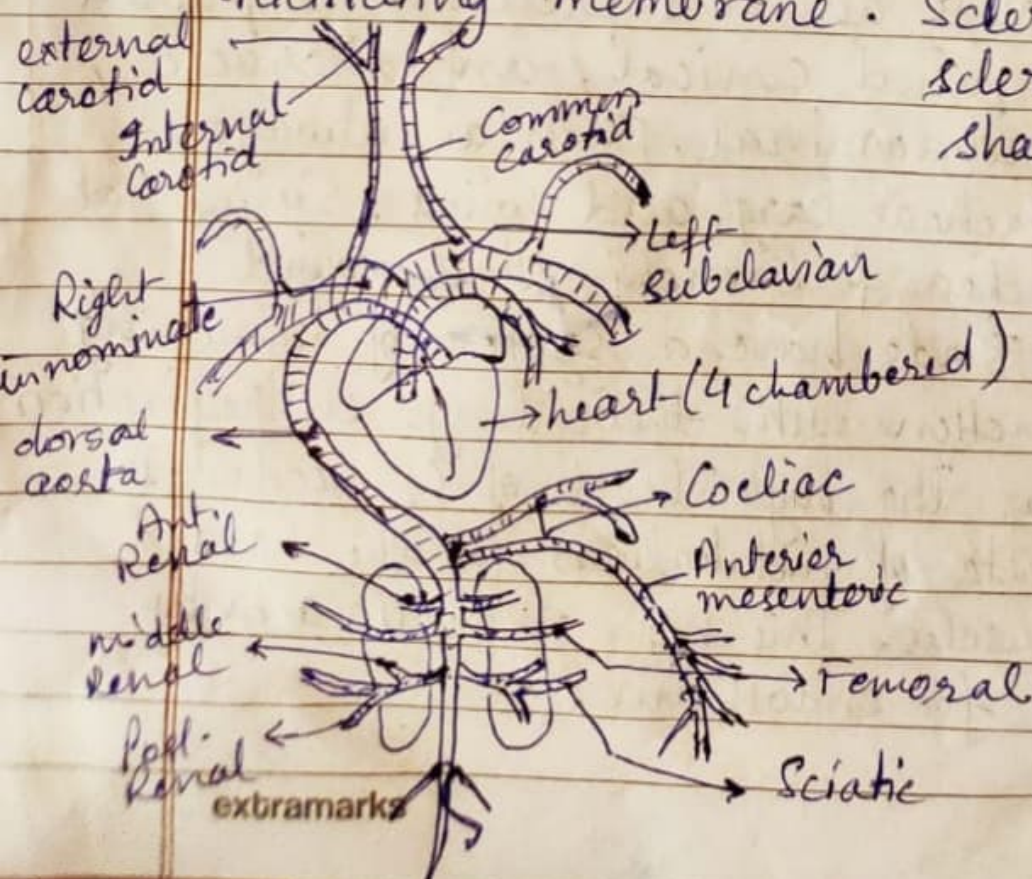 membrane. Scle
external
carotid
scler
Sha
Internal
carotid
Common
carotid
Left
subclavian
Right
innominate
heart (4 chambered)
dorsal
aorta
Coeliac
Ant.
Renal
Anterior
mesenteric
middle
Renal
Femoral
Post.
Renal
Sciatic
extramarks